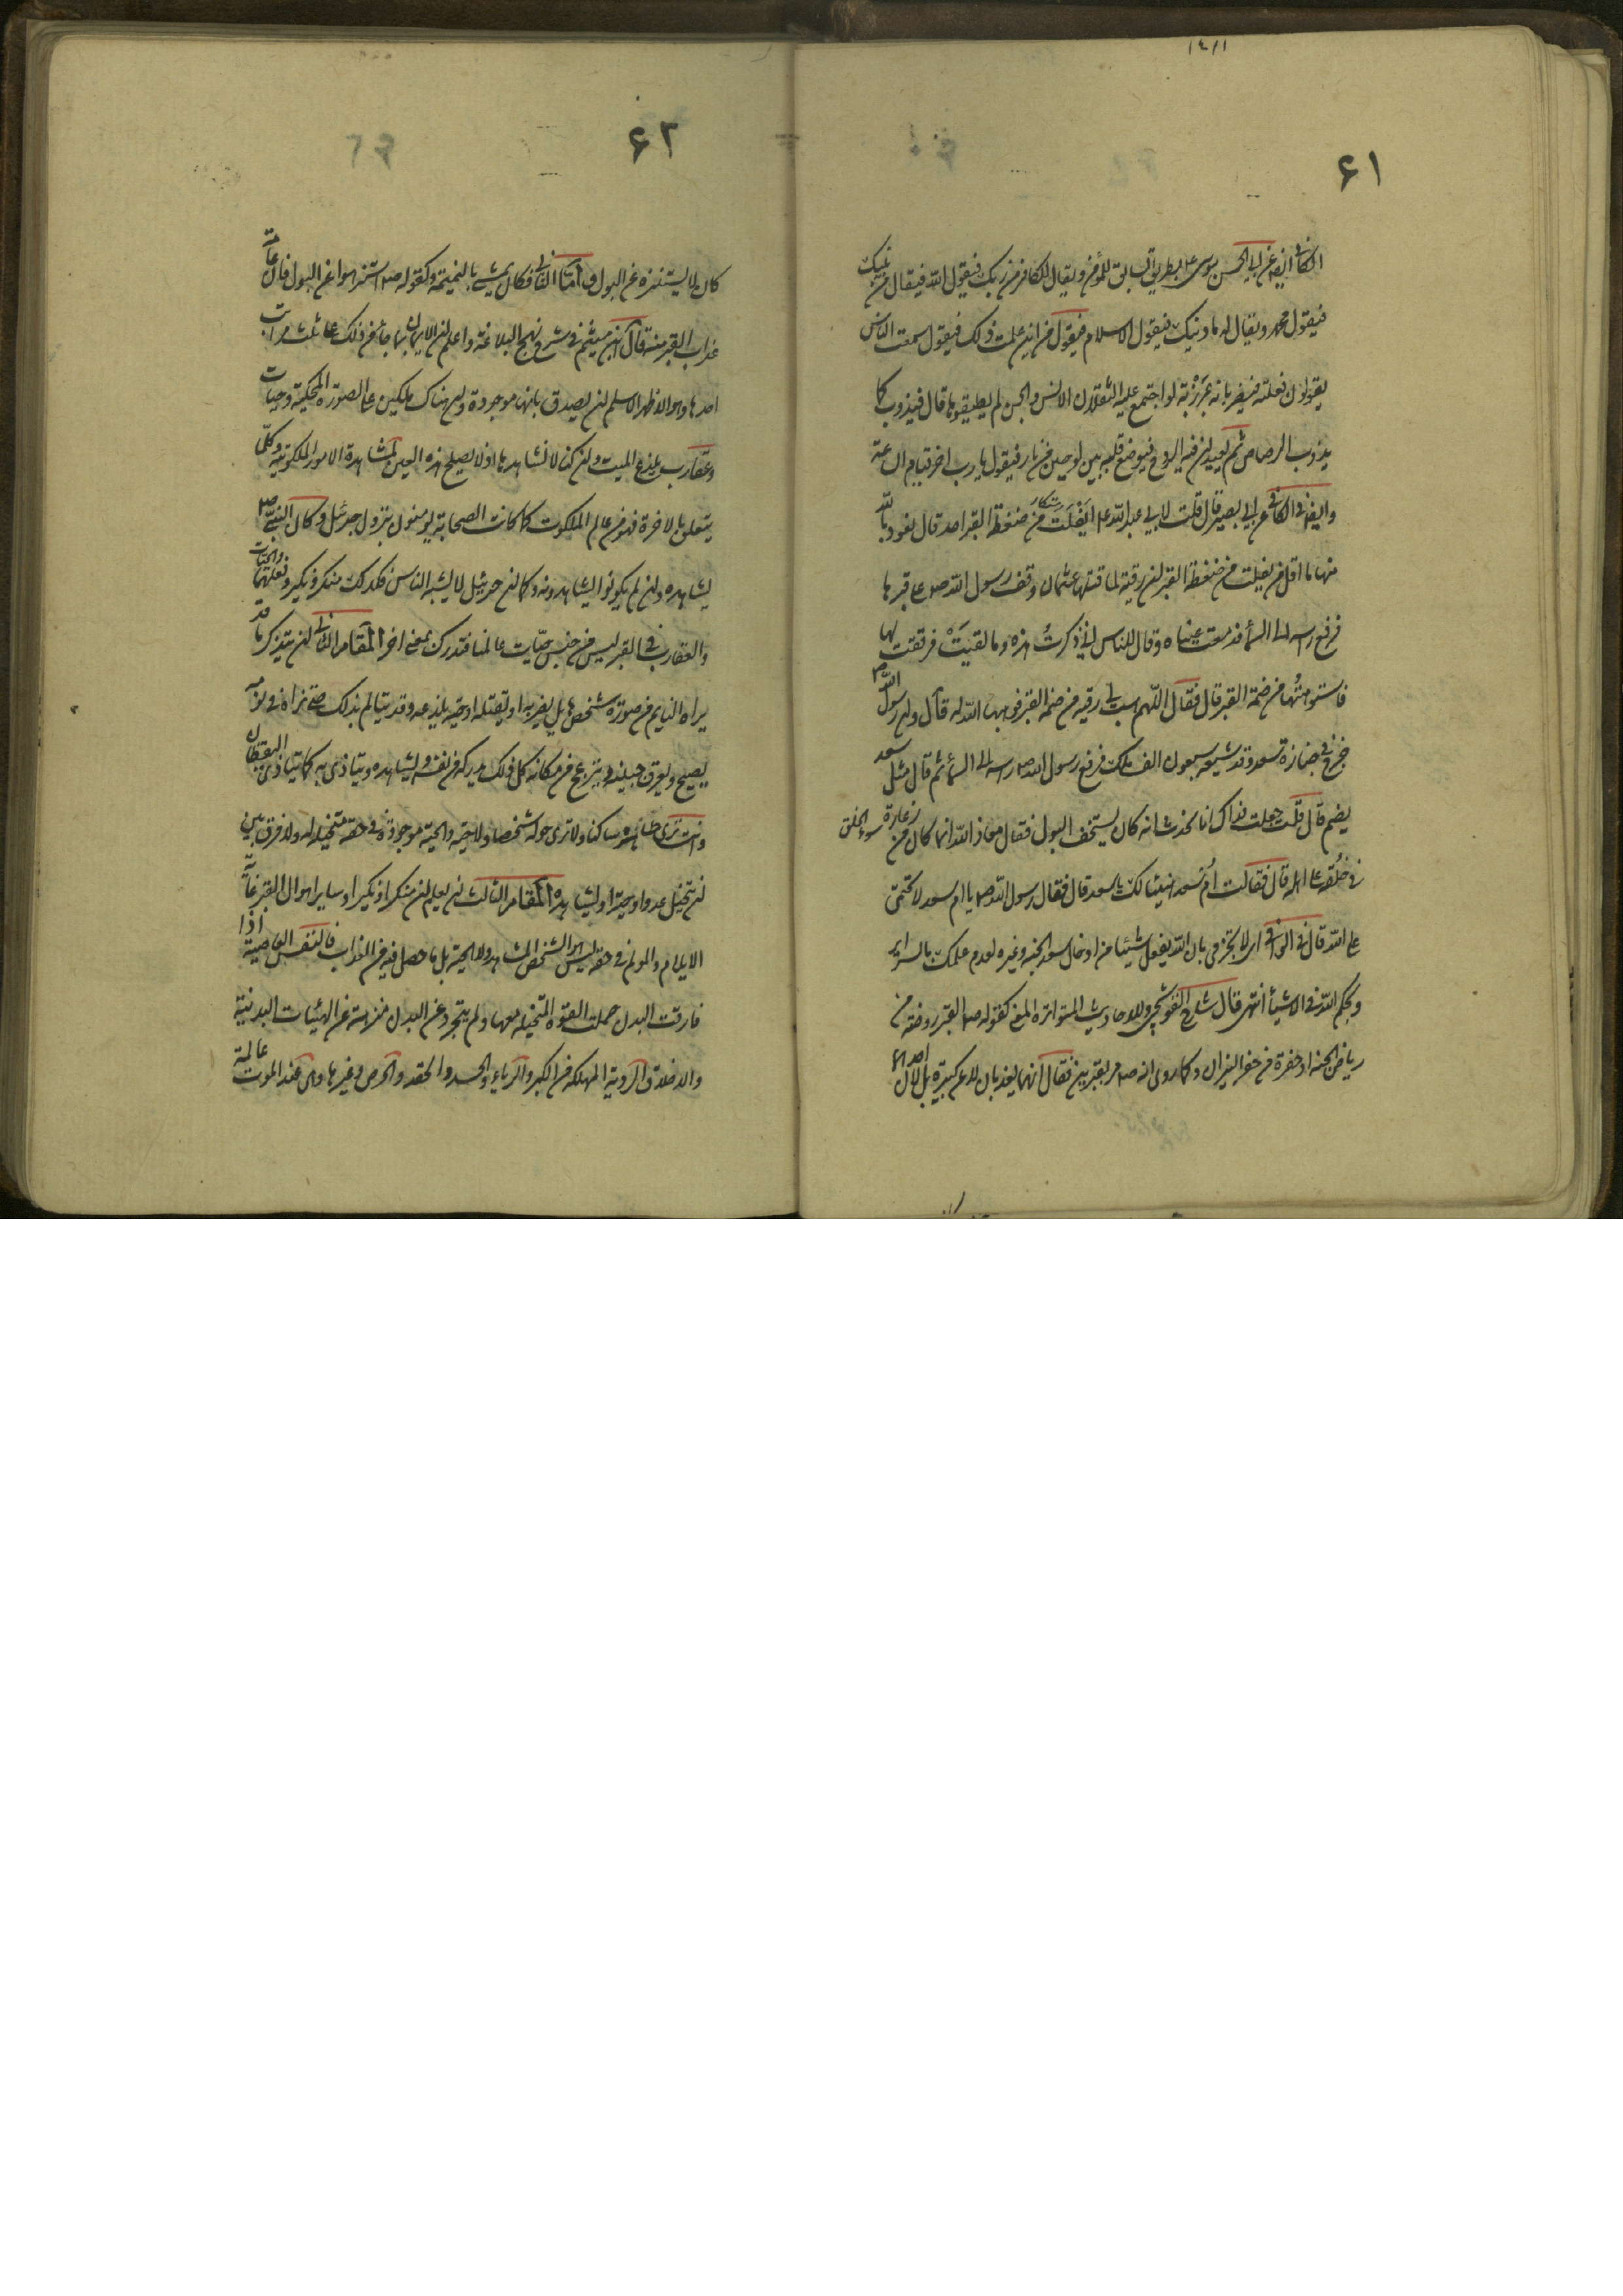 ۶۱
الكافى ايضا عن ابى الحسن موسى ع بطريق سابق للمؤمن ويقال للكافر من ربك فيقول الله فيقال من نبيك
فيقول محمد ويقال له ما دينك فيقول الاسلام فيقول من اين علمت ذلك فيقول سمعت الناس
يقولون فقلته فيضربانه بمرزبة لو اجتمع عليه الثقلان الانس والجن لم يطيقوها قال فيذوب كما
يذوب الرصاص ثم يعيدان فيه الروح فيوضع قلبه بين لوحين من نار فيقول يا رب اخر قيام الساعة
وايضا فى الكافى عن ابى بصير قال قلت لابى عبد الله ع ايفلت من ضغطة القبر احد قال نعوذ بالله
منها ما اقل من يفلت من ضغطة القبر ان رقية لما قتلها عثمان وقف رسول الله ص على قبرها
فرفع راسه الى السماء فدمعت عيناه وقال للناس انى ذكرت هذه وما لقيت فرققت لها
فاستوهبتها من ضمة القبر قال فقال اللهم هب لى رقيه من ضمة القبر فوهبها الله له قال وان رسول الله ص
خرج فى جنازة سعد وقد شيعه سبعون الف ملك فرفع رسول الله ص راسه الى السماء ثم قال مثل سعد
يضم قال قلت جعلت فداك انا نحدث انه كان يستخف البول فقال معاذ الله انما كان من زعارة سوء الخلق
فى خلقه على اهله قال فقالت ام سعد هنيئا لك يا سعد قال فقال رسول الله ص يا ام سعد لا تحتمى
على الله قال فى الوافى اى لا تجزمى بان الله يفعل شيئا من ادخال سعد الجنه وغيره لعدم علمك بالسراير
وبحكم الله فى الاشياء انتهى قال شارح القوشجى وللاحاديث المتواترة المعنى كقوله ص القبر روضة من
رياض الجنة او حفرة من حفر النيران وكما روى انه ص مر بقبرين فقال انهما يعذبان لا عن كبيرة بل لان احدهما
۶۲
كان لا يستنزه عن البول واما الثانى فكان يمشى بالنميمة وكقوله ص استنزهوا عن البول فان عامة
عذاب القبر منه قال ابن ميثم فى شرح نهج البلاغة واعلم ان الايمان بما جاء من ذلك على ثلث مراتب
احدها وهو الاظهر الاسلم ان يصدق بانها موجودة وان هناك ملكين على الصورة المحكية وحيات
وعقارب تلدغ الميت وان كنا لا نشاهدها اذ لا يصلح هذه العين لمشاهدة الامور الملكوتية وكلما
يتعلق بالاخرة فهو من عالم الملكوت كما كانت الصحابة يؤمنون بنزول جبرئيل وكان النبى ص
يشاهده وان لم يكونوا يشاهدونه وكما ان جبرئيل لا يشبه الناس فكذلك منكر ونكير وفعلهما والحيات
والعقارب فى القبر ليس من جنس حيات عالمنا فتدرك بمعنى اخر المقام الثانى ان يتذكر ما قد
يراه النايم من صورة شخص هايل يضربه او يقتله او حية يلدغه وقد يتالم بذلك حتى نراه فى نومه
يصيح ويعرق جبينه وينزعج من مكانه كل ذلك يدركه من نفسه ويشاهده ويتاذى به كما يتاذى اليقظان
وانت ترى ظاهره ساكنا ولا ترى حوله شخصا ولا حية والحية موجودة فى حقه متخيله له ولا فرق بين
ان يتخيل عدوا او حية او يشاهده المقام الثالث ان يعلم ان منكرا ونكيرا وساير اهوال القبر غايته
الايلام والمولم فى حقه ليس هو الشخص المشاهد ولا الحية بل ما حصل فيه من العذاب فالنفس العاصية اذا
فارقت البدن حملت القوة المتخيلة معها ولم يتجرد عن البدن منزهة عن الهيئات البدنية
والاخلاق الردية المهلكه من الكبر والرياء والحسد والحقد والحرص وغيرها وهى عند الموت عالمة